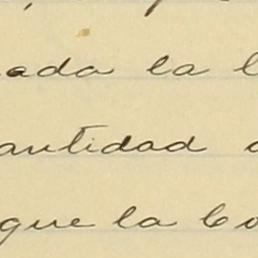 ada la
antidad
que la